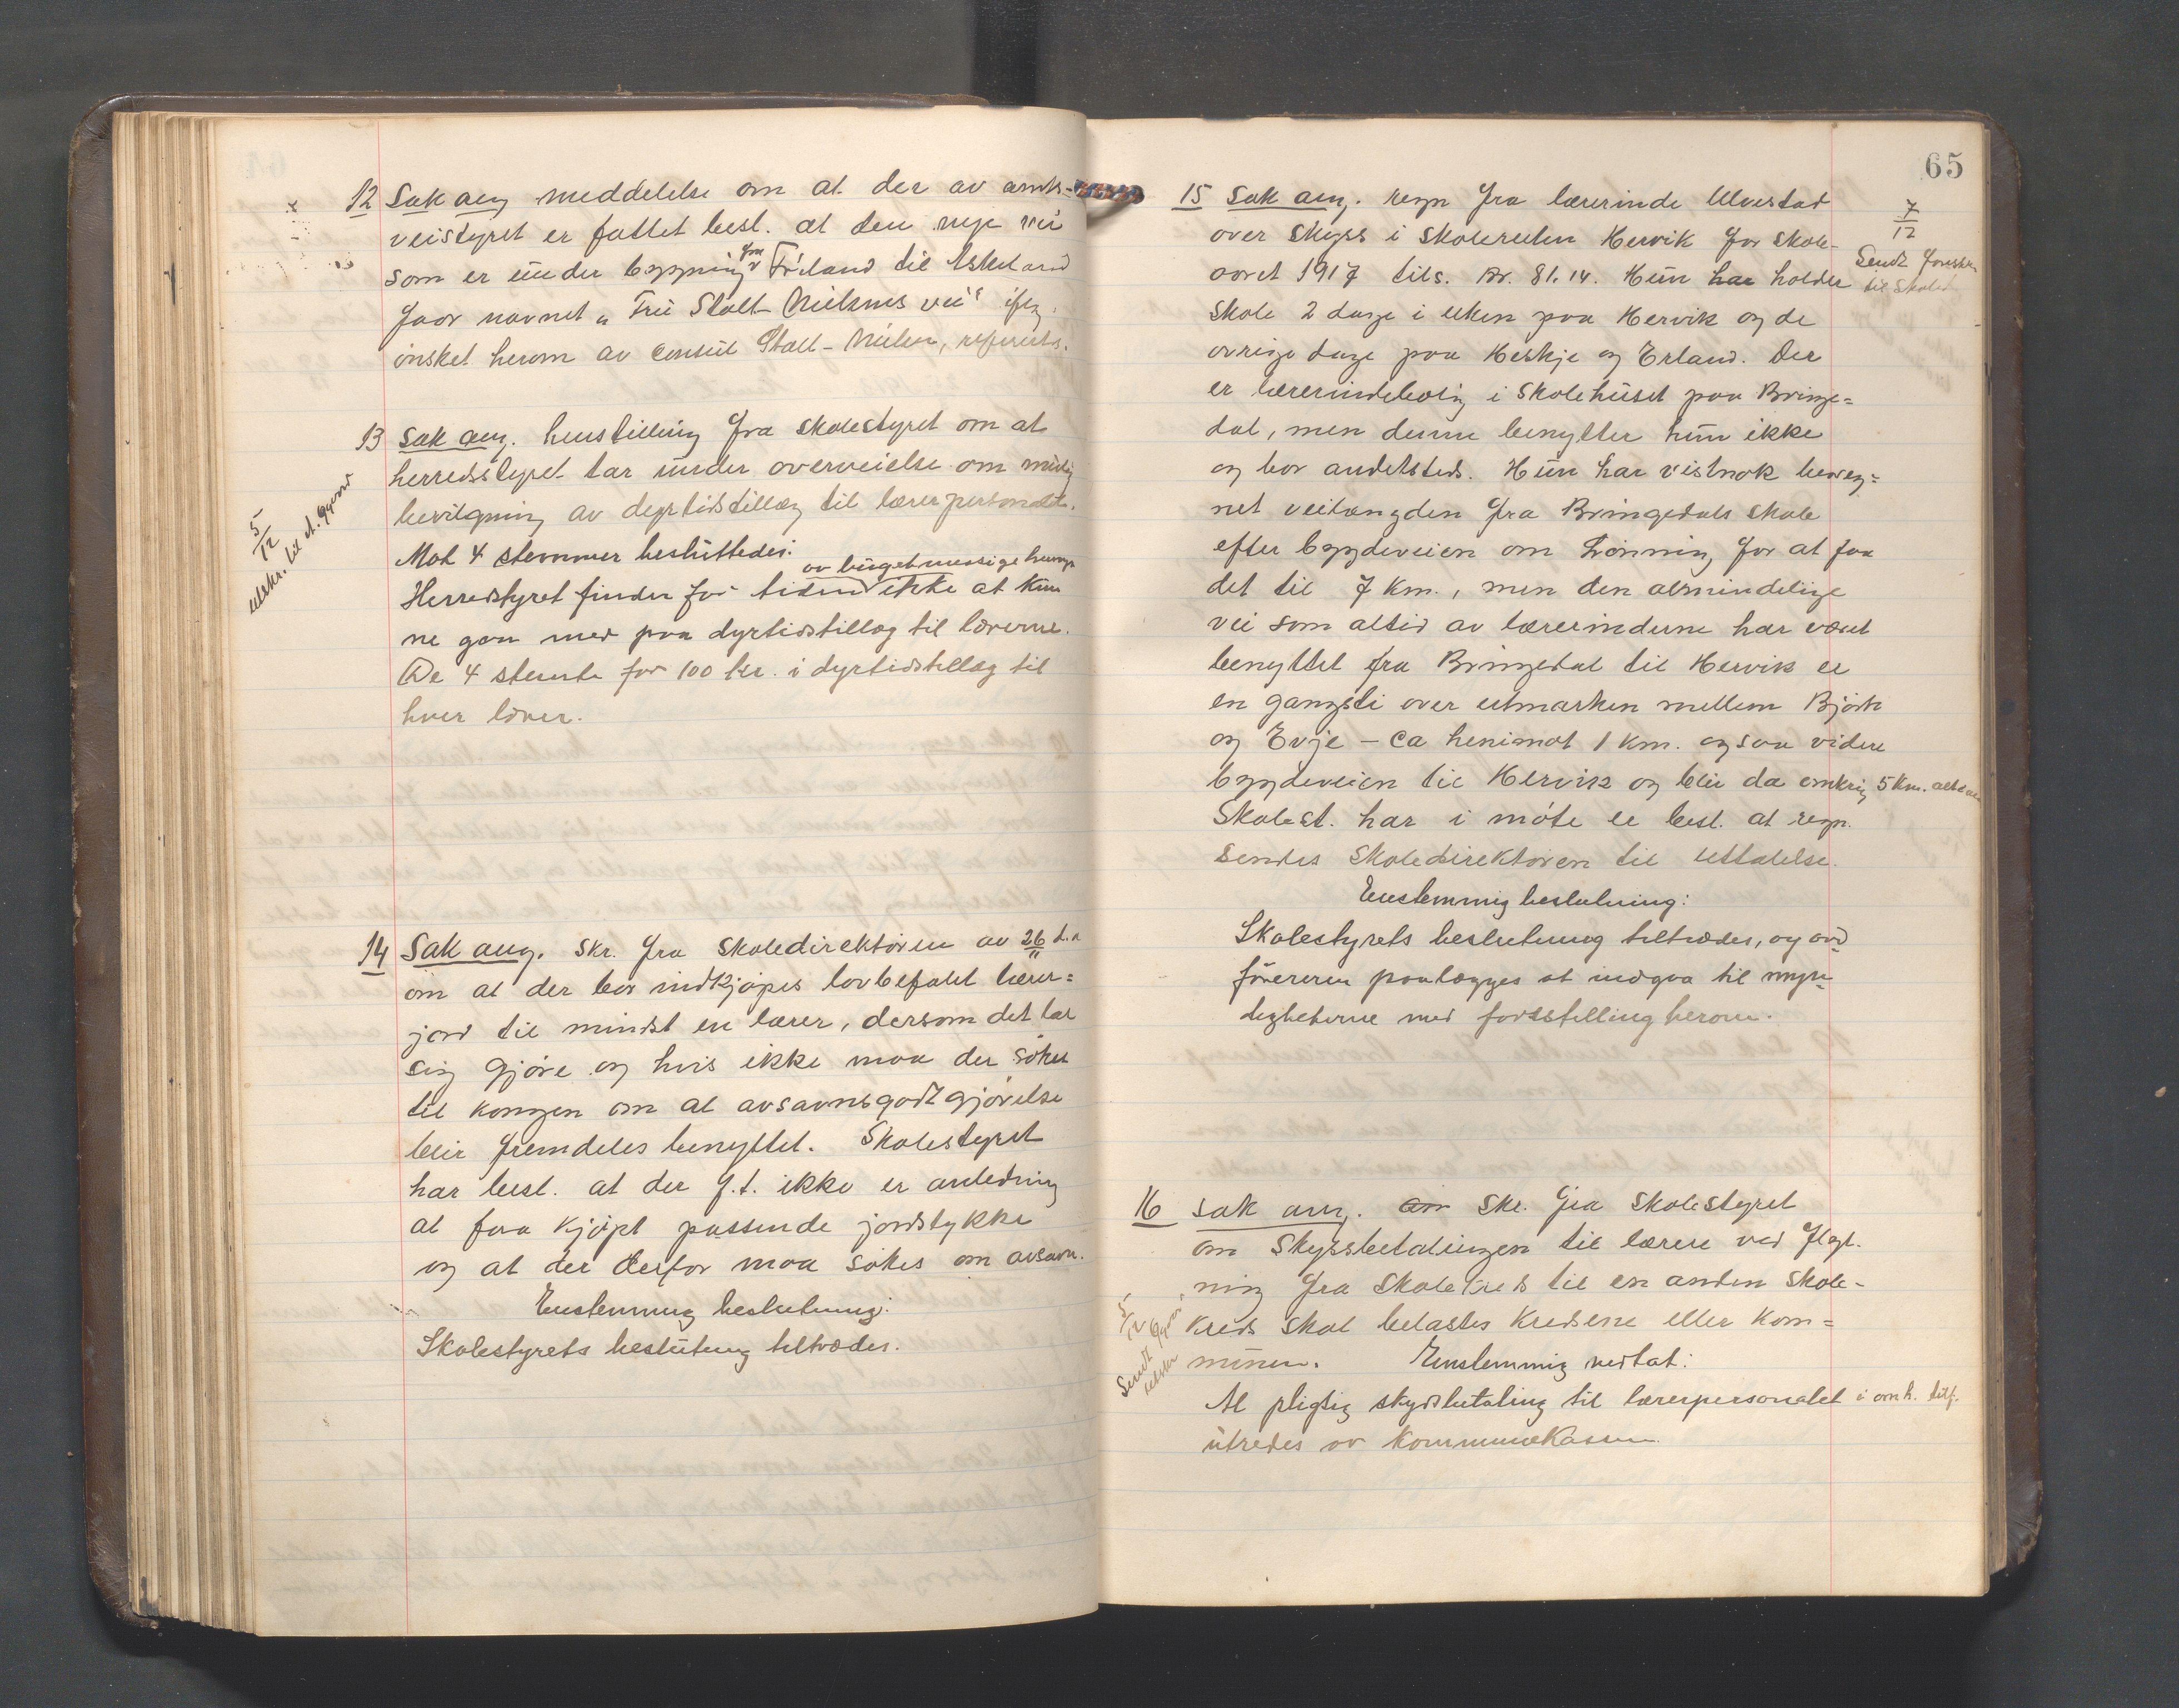 12 Sak ang meddelelse om at der av amts-
veistyret er fattet besl. at den nye vei
som er under bygning fra Förland til Eskeland
faar navnet „Fru Stolt-Nielsens vei" iflg.
ønsket herom av Consul Stolt-Nielsen, refertes.
13 Sak ang. henstilling fra skolestyret om at
herredsstyret tar under overveielse om mulig
bevilgning av dyrtidstillæg til lærerpersonalet.
5/12
utskr. til
Mot 4 stemmer besluttedes:
av bugetmessige hensyn
Herredstyret finder for tiden ikke at kun
ne gaa med paa dyrtidstillæg til lærerne.
De 4 stemte for 100 kr. i dyrtidstillæg til
hver lærer.
14 Sak ang. skr. fra Skoledirektøren av 26/11 d.a
om at der bør indkjøpes lovbefalet lærer=
jord til mindst en lærer, dersom det lar
sig gjøre og hvis ikke maa der søkes
til kongen om at avsavnsgodtgjørelse
blir fremdeles benyttet. Skolestyret
har besl. at der f.t. ikke er anledning
at faa kjøpt passende jordstykke
og at der derfor maa søkes om avsavn.
Enstemmig beslutning:
Skolestyrets beslutning tiltrædes.
65
15 Sak ang. regn fra lærerinde Ulvestad
over skyss i skoleruten Hervik for skole-
aaret 1917 tils. kr. 81.14. Hun har holdt
7/12
Sendt
til Skoled
skole 2 dage i uken paa Hervik og de
øvrige dage paa Heskje og Erland. Der
er lærerindebolig i skolehuset paa Bringe=
dal, men denne benytter hun ikke
og bor andetsteds. Hun har vistnok bereg=
net veilængden fra Bringedals skole
efter bygdeveien om Lönning for at faa
det til 7 km., men den almindelige
vei som altid av lærerinderne har været
benyttet fra Bringedal til Hervik er
en gangsti over utmarken mellem Björk
og Evje – ca henimot 1 km. og saa videre
bygdeveien til Hervik og blir da omkring 5 km.
Skolest. har i möte besl. at regn.
sendes Skoledirektøren til uttalelse.
Enstemmig beslutning:
Skolestyrets beslutning tiltrædes, og ord
förereren paalægges at indgaa til myn
digheterne med forestilling herom.
16 Sak ang. skr. fra Skolestyret
om Skyssbetalingen til lærere ved flyt-
ning fra skolekreds til en anden skole-
kreds skal belastes kredsene eller kom=
munen. Enstemmig vedtat:
5/12
Sendt
utskr
Al pligtig skydsbetaling til lærerpersonalet i omh. tilf.
utredes av kommunekassen.